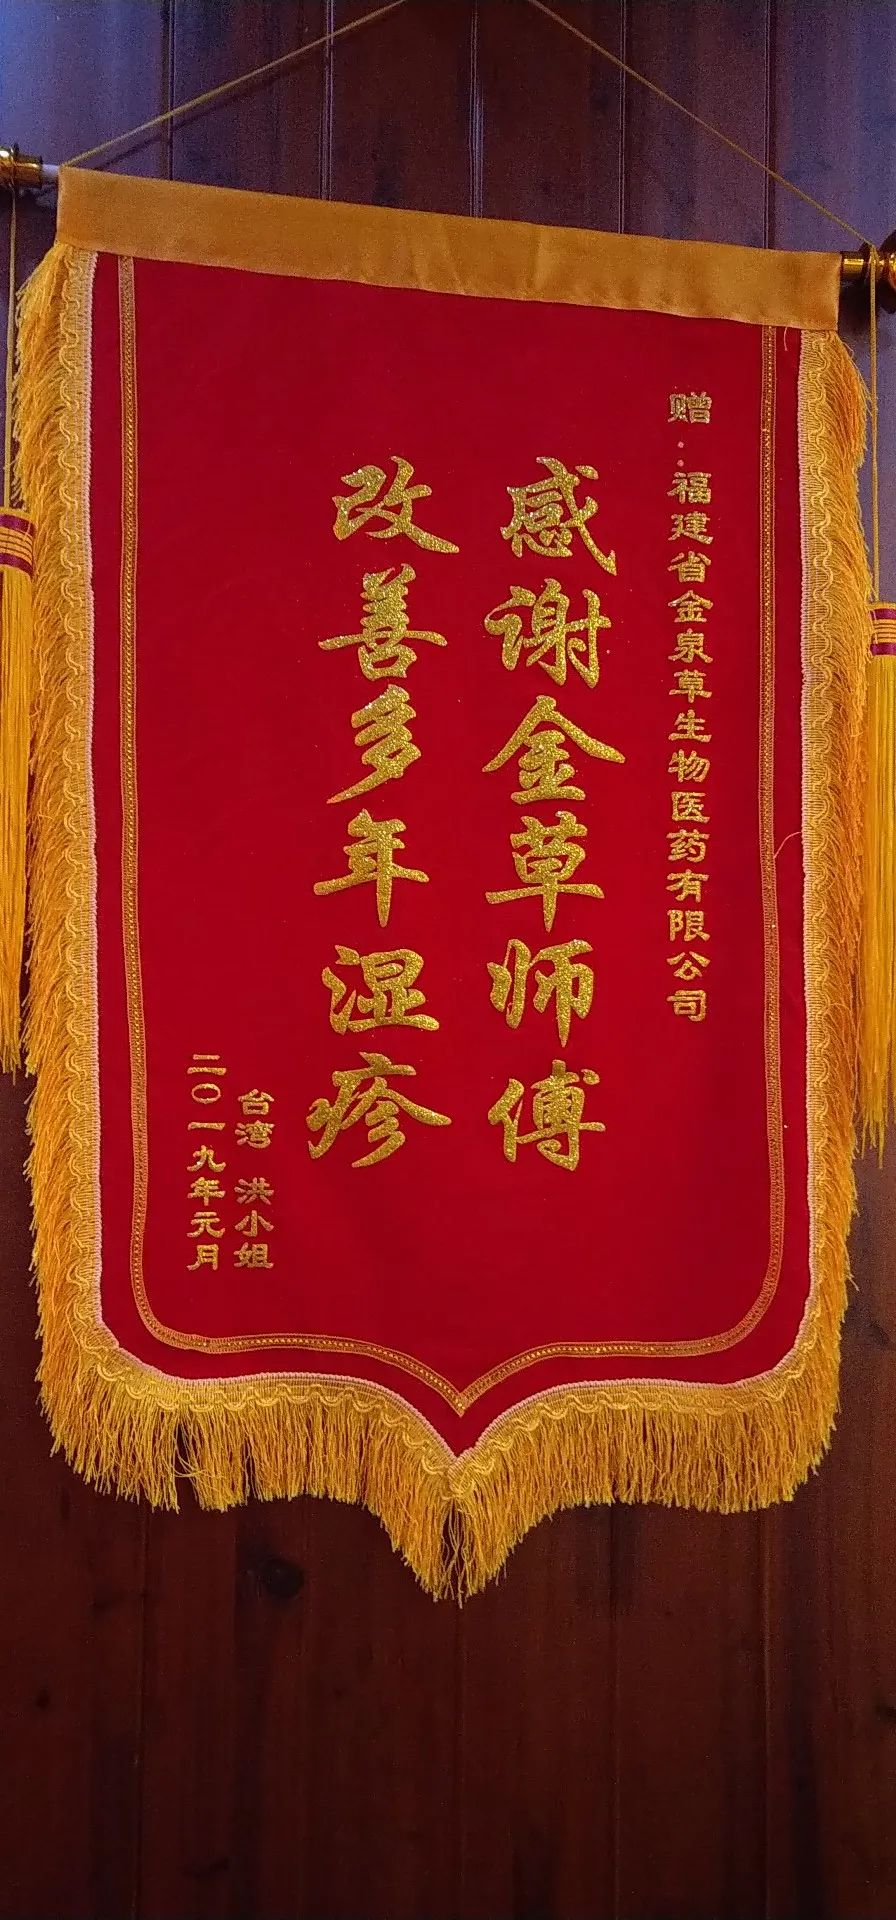 赠：福建省金泉草生物医药有限公司
感谢金草师傅
改善多年湿疹
台湾 洪小姐
二〇一九年元月